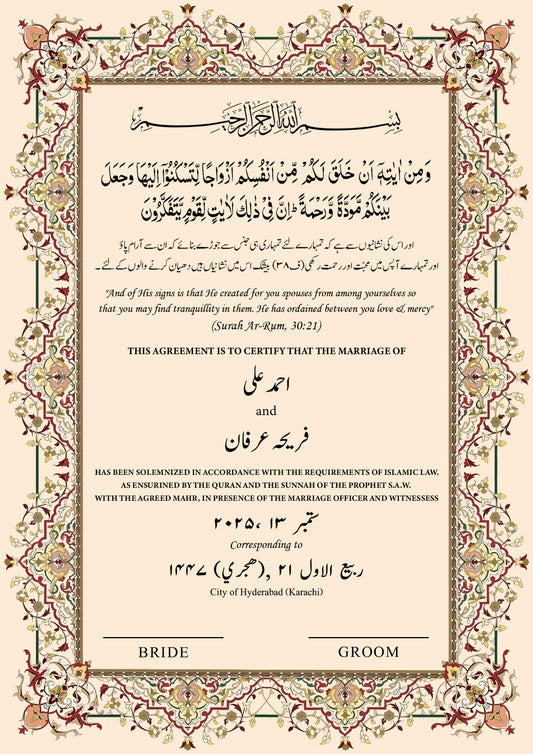 بسم الله الرحمن الرحيم
وَمِنْ اٰيٰتِهٖۤ اَنْ خَلَقَ لَكُمْ مِّنْ اَنْفُسِكُمْ اَزْوَاجًا لِّتَسْكُنُوْۤا اِلَيْهَا وَجَعَلَ
بَيْنَكُمْ مَّوَدَّةً وَّرَحْمَةً ؕ اِنَّ فِيْ ذٰلِكَ لَاٰيٰتٍ لِّقَوْمٍ يَّتَفَكَّرُوْنَ
اور اس کی نشانیوں سے ہے کہ تمہارے لئے تمہاری ہی جنس سے جوڑے بنائے کہ ان سے آرام پاؤ
اور تمہارے آپس میں محبت اور رحمت رکھی (ف۳۸) بیشک اس میں نشانیاں ہیں دھیان کرنے والوں کے لئے ۔
"And of His signs is that He created for you spouses from among yourselves so
that you may find tranquillity in them. He has ordained between you love & mercy"
(Surah Ar-Rum, 30:21)
THIS AGREEMENT IS TO CERTIFY THAT THE MARRIAGE OF
احمد علی
and
فریحہ عرفان
HAS BEEN SOLEMNIZED IN ACCORDANCE WITH THE REQUIREMENTS OF ISLAMIC LAW.
AS ENSURINED BY THE QURAN AND THE SUNNAH OF THE PROPHET S.A.W.
WITH THE AGREED MAHR, IN PRESENCE OF THE MARRIAGE OFFICER AND WITNESSESS
ستمبر ۱۳ ،۲۰۲۵
Corresponding to
ربیع الاول ۲۱ ,(هجري) ۱۴۴۷
City of Hyderabad (Karachi)
BRIDE
GROOM